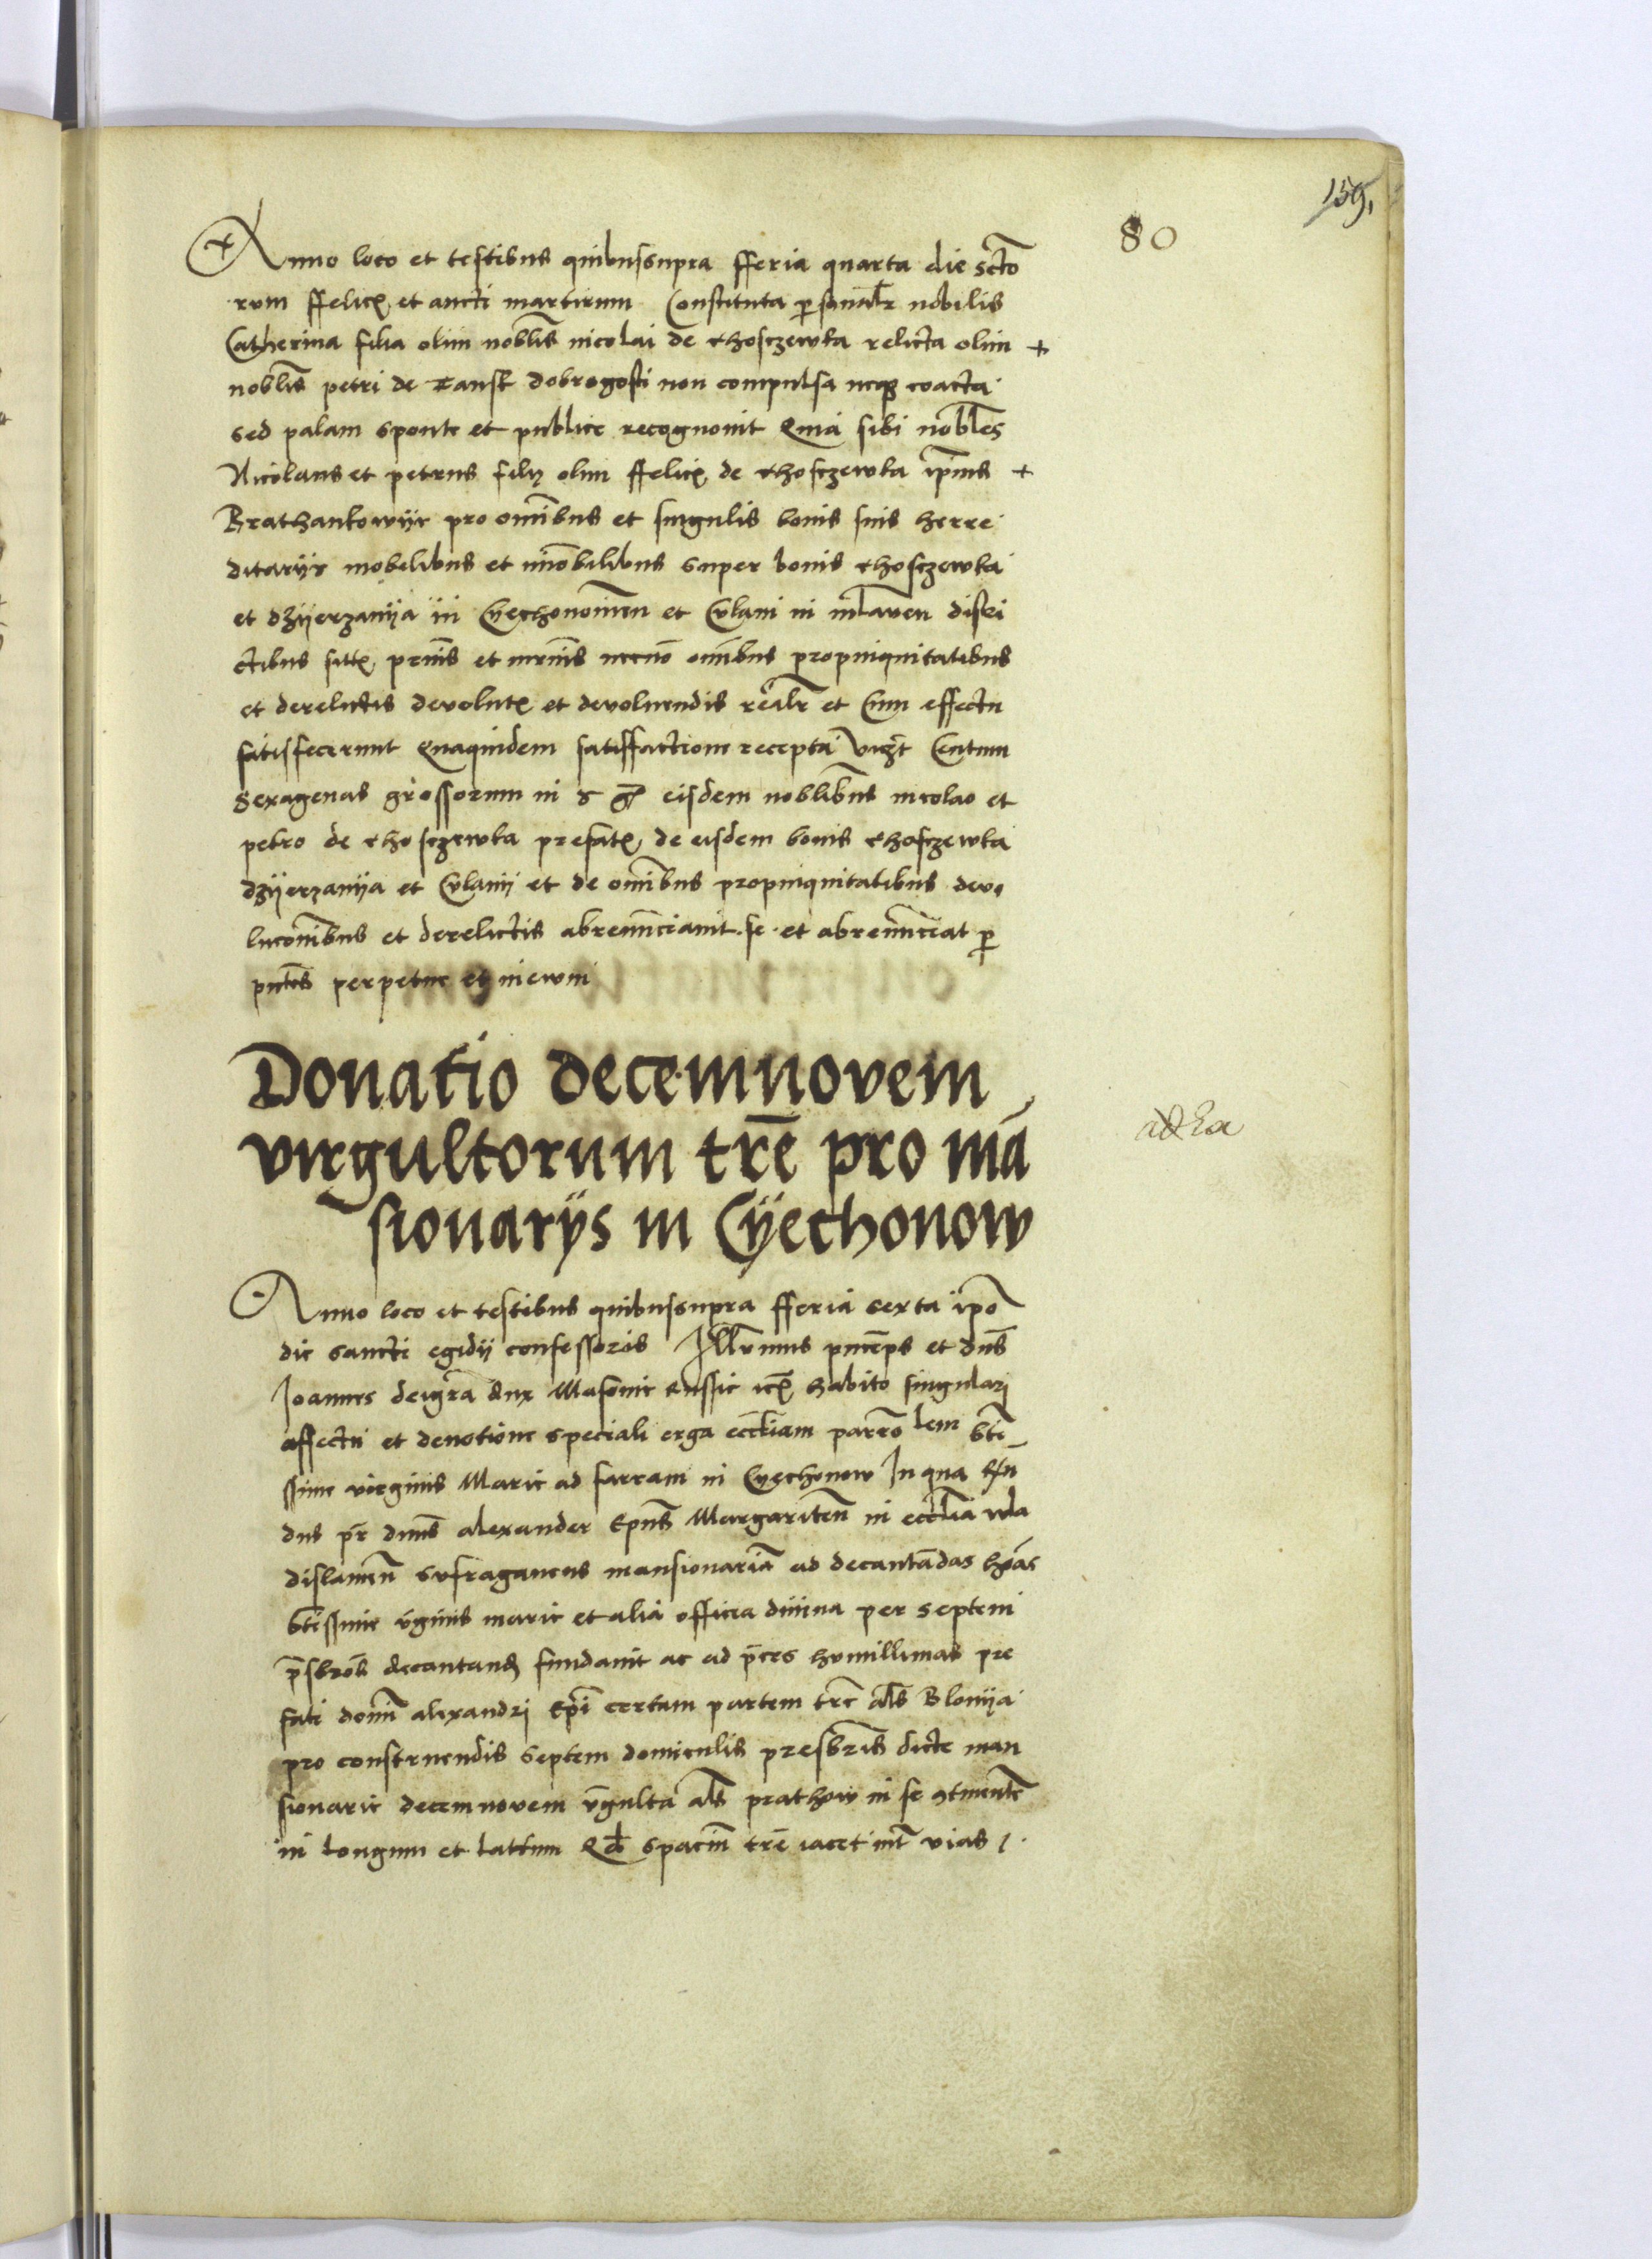 159,
80
Anno loco et testibus quibussupra fferia quarta die scto
rum ffelicis et aucti martirum Constituta personalr nobilis
Catherina filia olim noblis nicolai de Choschewka relicta olim +
noblis petri de dobrogosti non compulsa neque coacta
sed palam sponte et publice recognovit Quia sibi nobles
Nicolaus et petrus filij olim ffelicis de Choschewka ipius +
Brathankowije pro omibus et singulis bonis suis herre
ditarijs mobilibus et imobilibus super bonis Choschewka
et dzijerzanija in Cyechonomien et Culani in mlaven distri
ctibus sittis prnis et mrnis necno omibus propinquitatibus
et derelictis devolutis et devoluendis realr et Cum effectu
satisfecerunt Quaquidem satisffactione recepta vizt Centum
Sexagenas grossorum in eisdem noblibus nicolao et
petro de Choschewka prefatis de eisdem bonis Choschewka
dzijerzanija et Culanij et de omibus propinquitatibus devo
lucionibus et derelictis abrenunciavit se et abrenunciat per
pntes perpetue et in ewm
Donatio decemnovem
virgultorum tre pro ma
sionarijs in Cyechonow
Anno loco et testibus quibussupra fferia sexta ipo
die sancti egidij confessoris Illrmus pnceps et dns
Joannes deigra dux Masovie Russie habito singulari
affectu et devotione speciali erga eccliam parrolem bti
ssime virginis Marie ad farram in Cyechonow In qua Rn
dus pr dnus alexander Epus Margariten in ecclia wla
dislavien sufraganeus mansionaria ad decantadas horas
btissime vginis marie et alia officia divina per septem
prsbros decantand fundavit ac ad pces humillimas pre
fati domi alexandri Epi certam partem tre als Blonija
pro construendis septem domiculis presbris dicte man
sionarie decemnovem vgulta als prathow in se
in longum et lattum Qd spacium tre iacet int vias